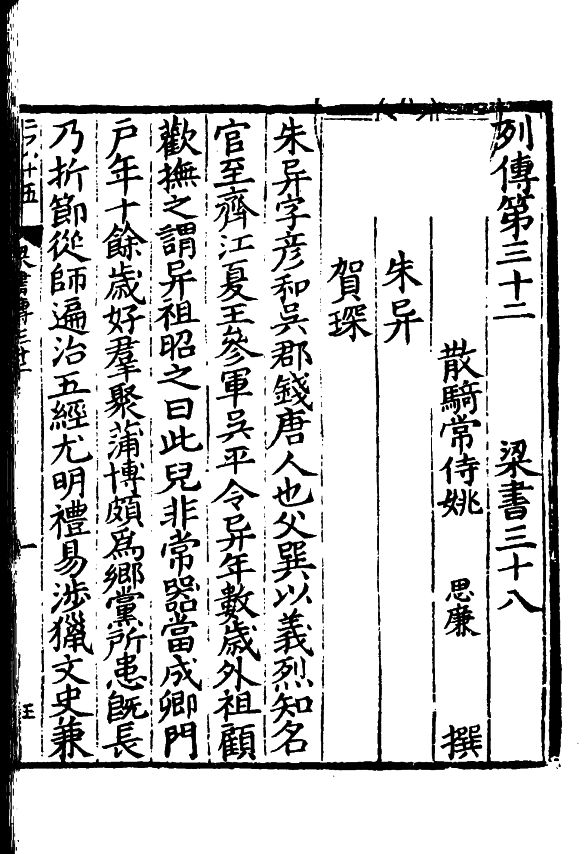 列傳第三十二 梁書三十八
散騎常侍姚 思廉 撰
朱异
賀琛
朱异字彦和吳郡錢唐人也父巽以義烈知名
官至齊江夏王參軍吳平令异年數歲外祖顧
歡撫之謂异祖昭之曰此兒非常器當成卿門
戶年十餘歲好羣聚蒲博頗爲鄉黨所患旣長
乃折節從師遍治五經尤明禮易涉獵文史兼